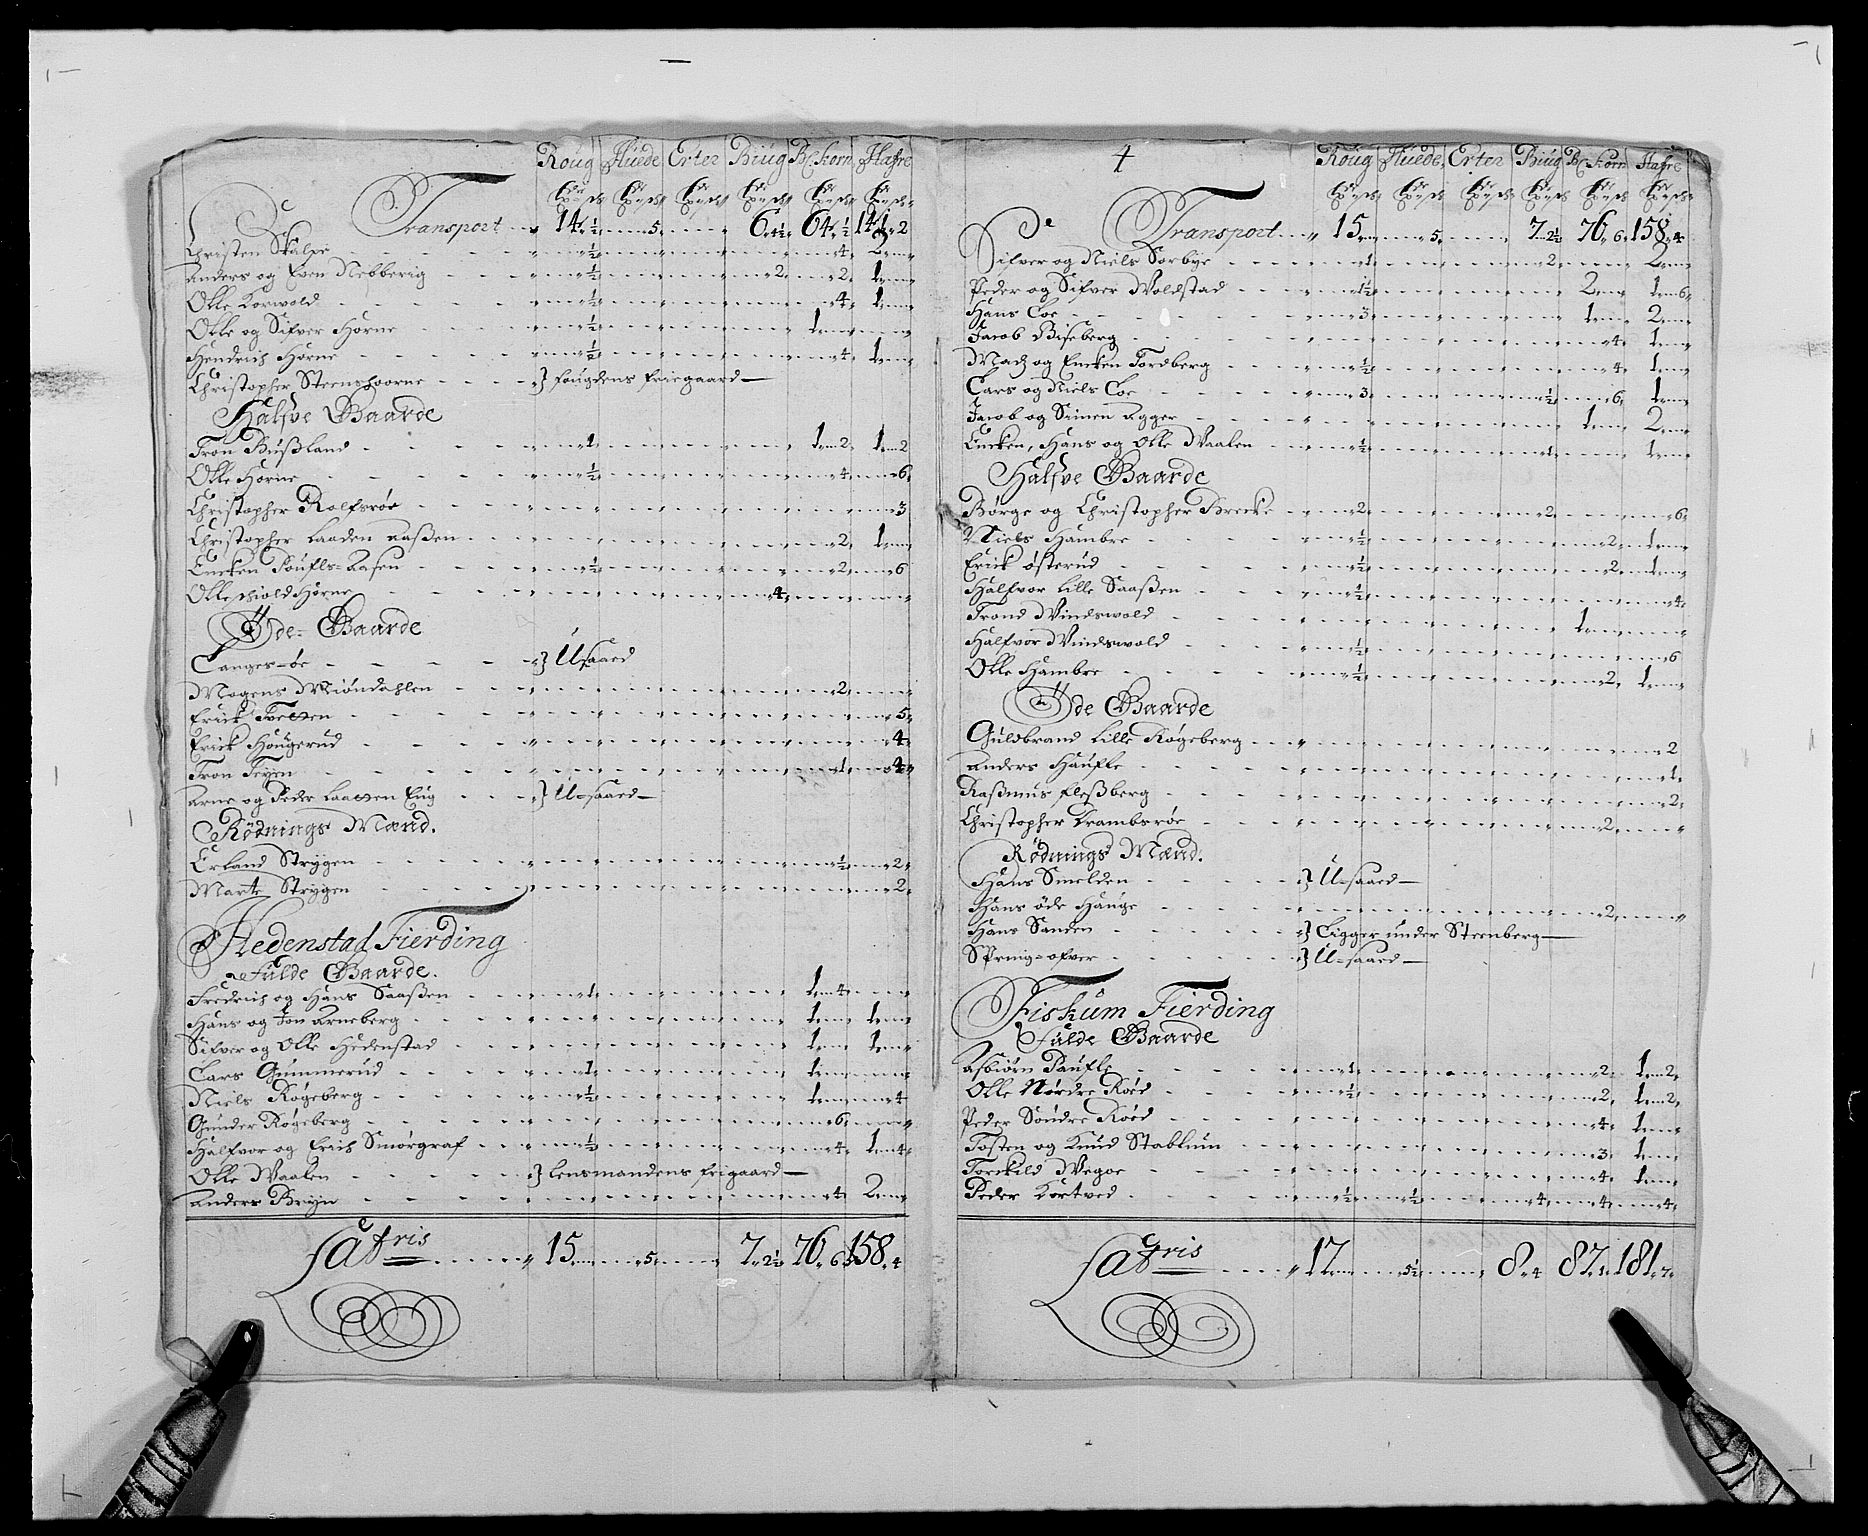 Roug Huede Erter Biug Bl: Korn Hafre
Transport 14 ½ 5 6 4½ 64 ½ 141 2
Christen Skalse ½ 4 2
Anders og Even Nebberig ½ 2 2 1
Olle Korwold ½ 4 1
Olle og Sifver Horne ½ 1
Hendrich Horne ½ 4 1
Christopher Steenshoorne } fougdens friegaard
Halfve Gaarde
Tron Bußland 1 1 2 1 2
Olle Horne ½ 4 6
Christopher Rolfsrøe 3
Christopher Laaden aaßen 2 1
Encken Poufls-Aasen ½ 2 6
Olle Horne 4
Øde Gaarde
Langes-øe } Usaaed
Mogens Miøndahlen 2
Erick 5
Erick Hougerud 4
Tron Teyen 1 4
Arne og Peder Laaszen Eug } Usaaed
Rødnings Mænd.
Erland Strygen ½ 2
Marte Strygen 2
Hedenstad Fierding
Fulde Gaarde.
Fredrich og Hans Saaßen 1 1 4
Hans og Jon Arneberg 1 1
Sifver og Olle Hedenstad 1 1
Lars Gummerud 1 1
Niels Røgeberg ½ 1 4
Gunder Røgeberg 6
Halfvor og Erich Smørgraf ½ 4 1 4
Olle Waalen } Lensmandens frigaard
Anders Bryn 4 2
Latris 15 5 7 2½ 76 6 158 4
4
Roug Huede Erter Biug Bl: Korn Hafre
Transport 15 5 7 2½ 76 6 158 4
Sifver og Niels Sorbye 1 2 2
Peder og Sifver Woldstad 1½ 2 1 6
Hans Loe 3 1 2
Jacob Biseberg 4 1
Madz og Encken Fordberg ½ 4 1
Lars og Niels Loe 3 ½ 6 1
Jacob og Simen Agger 1 2
Encken, Hans og Olle Waalen ½ 1 1
Halfve Gaarde
Børge og Christopher Brecke 2 2 6
Niels Hambre ½ 2 1
Erick Østerud ½ 2 1
Halfvor Lille Saaßen ½ 4
Trond Windswold 1
Halfvor Windswold ½ 6
Olle Hambre ½ 2 1
Øde Gaarde
Guldbrand Lille Røgeberg 2
Anders Haufle 1
Raßmus Fleßberg 2
Christopher Krambsrøe 2
Rødnings Mænd.
Hans Smelden } Usaaed
Hans Øde Hauge 2
Hans Sanden } Ligger under Steenberg
Spring-ofver } Usaaed
Fiskum Fierding
Fulde Gaarde
Asbiørn Paufle 1 2 1 2
Olle Nordre Røed ½ 2 1 2
Peder Søndre Røed 4 1
Tosten og Knud Stablum 3 1
Torckild Wegge 4 1
Peder Kortved ½ ½ 4 4 4
Latris 17 5½ 8 4 87 1 181 7